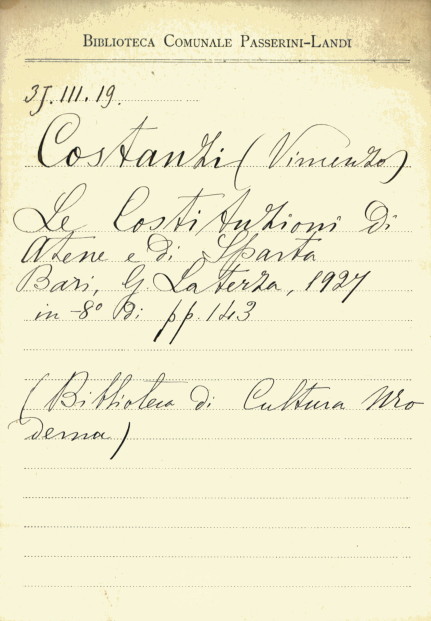 BIBLIOTECA COMUNALE PASSERINI-LANDI
3J.III.19.
Costanzi (Vincenzo)
Le Costituzioni di
Atene e di Sparta
Bari, G. Laterza, 1927
in-8° di pp. 143
(Biblioteca di Cultura Mo
derna)